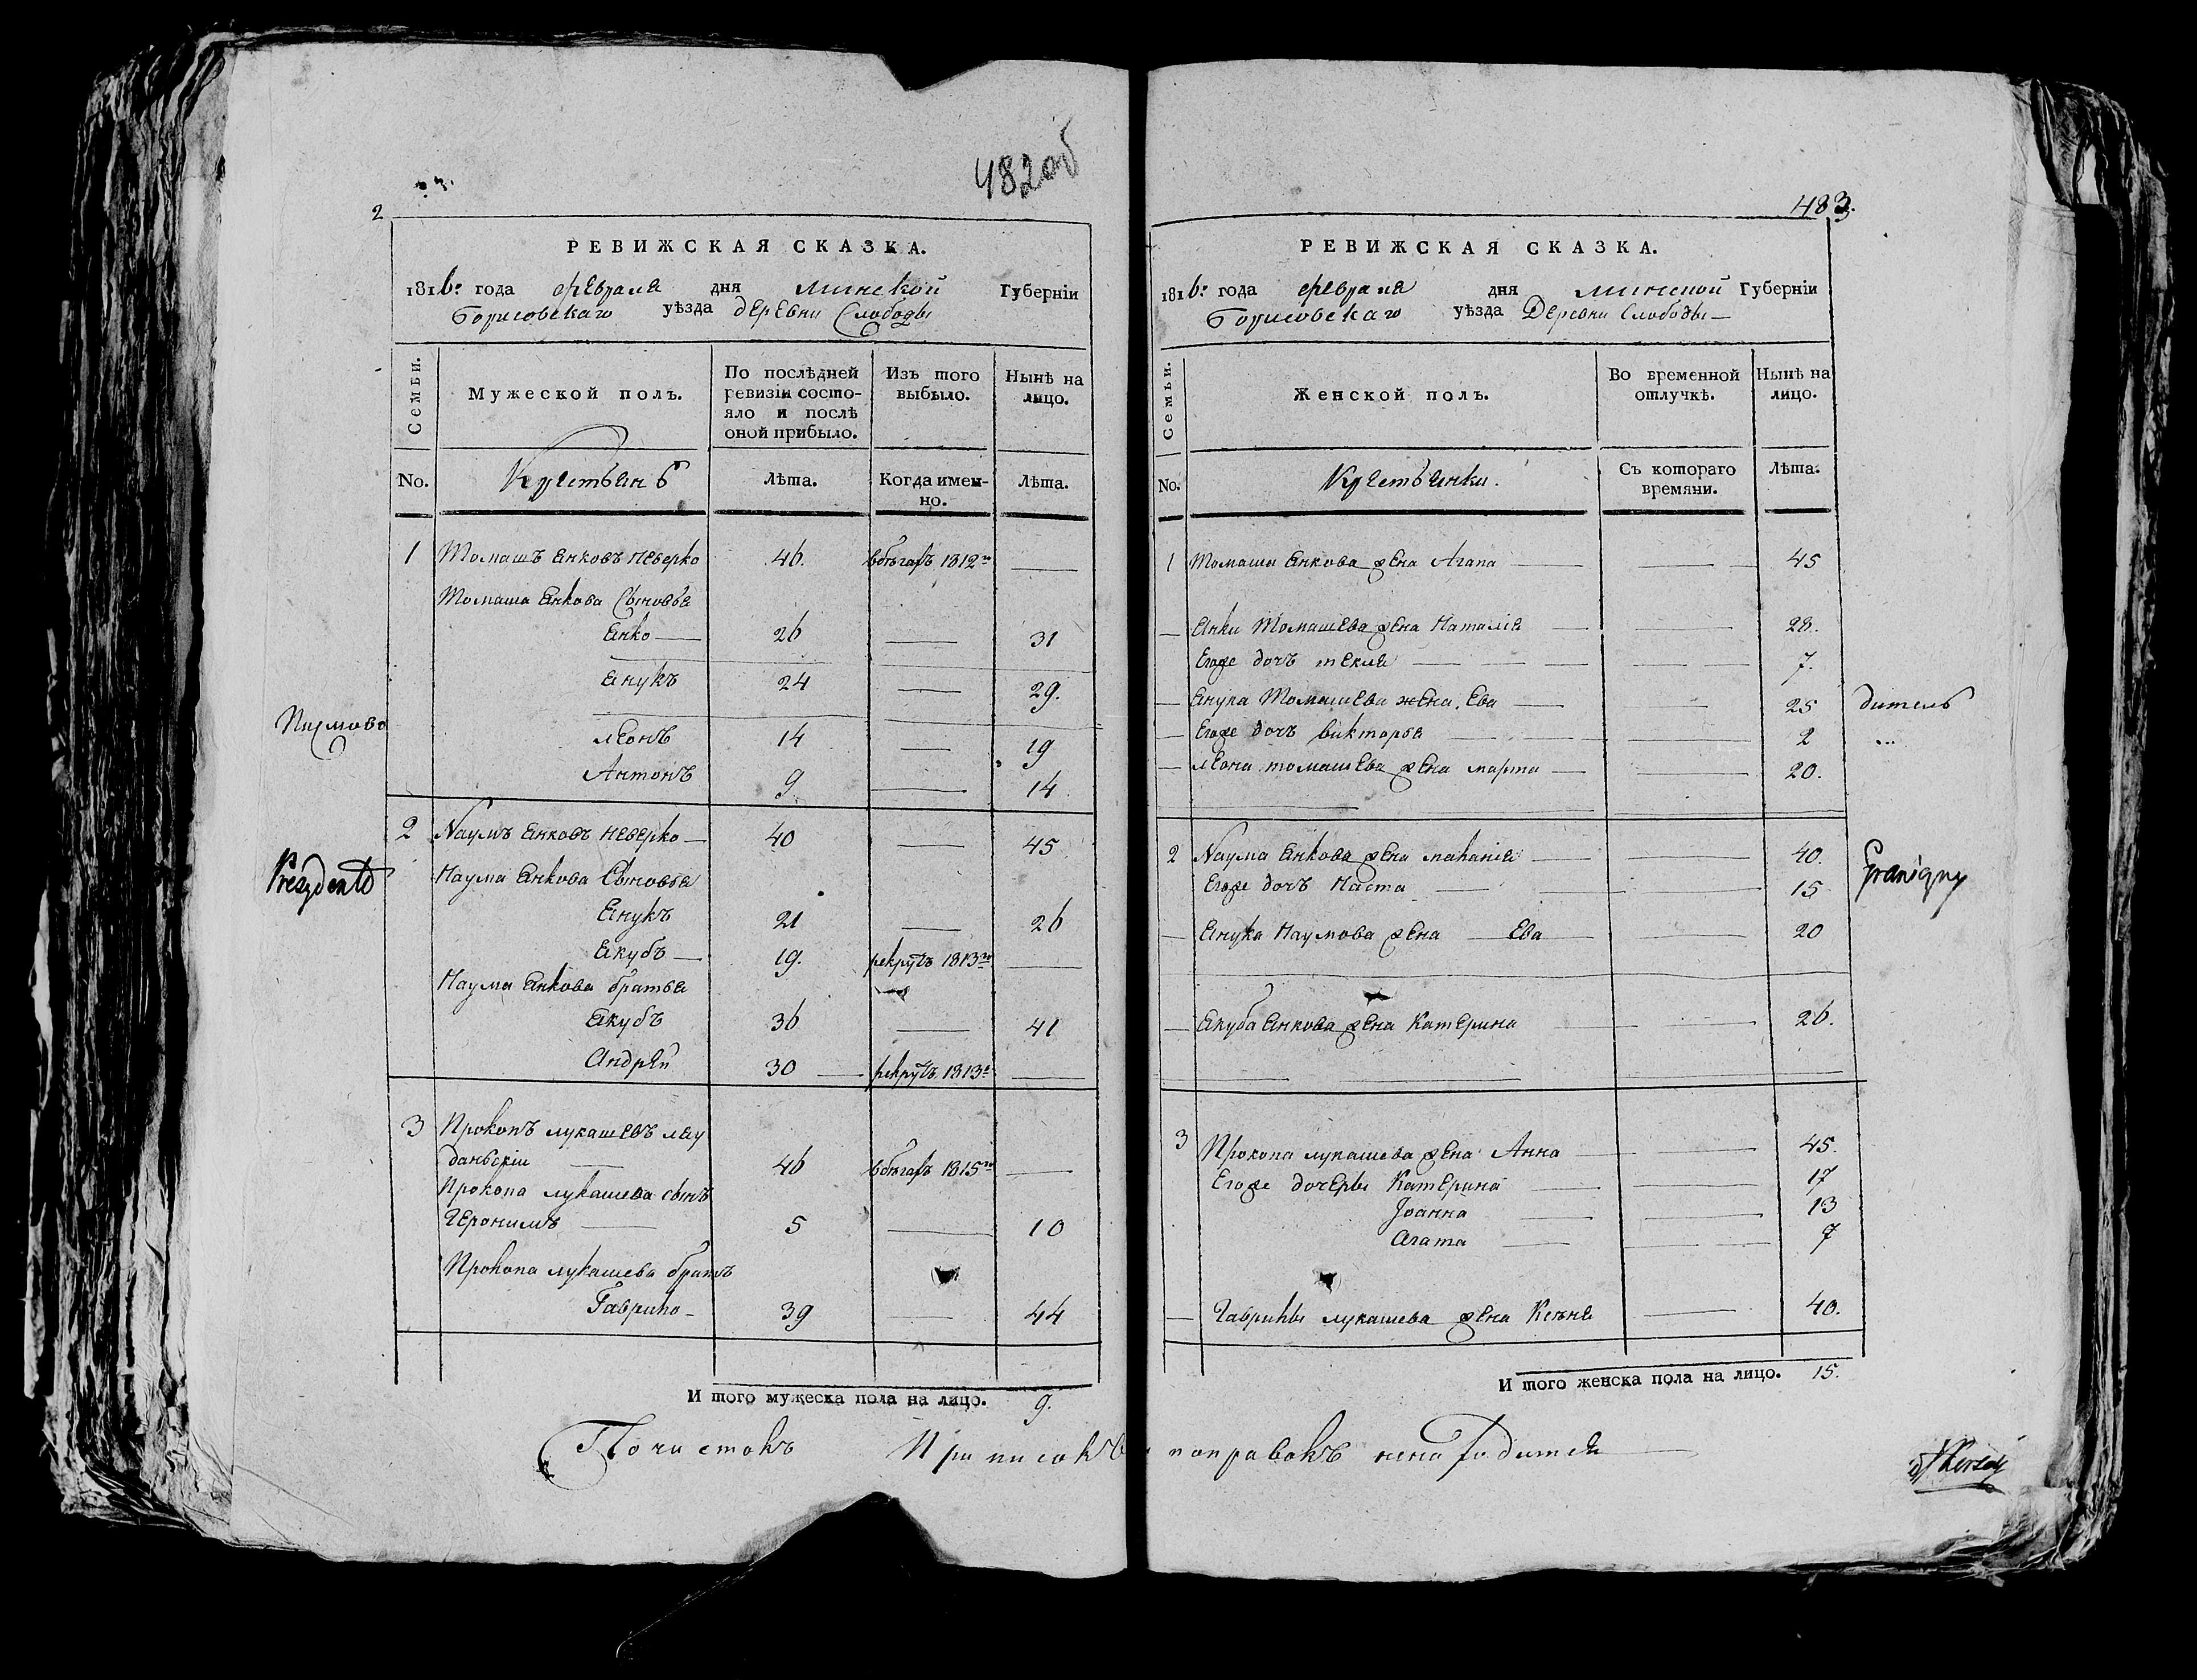 482 об
2
РЕВИЖСКАЯ СКАЗКА.
1816го года февраля дня Минской Губернiи
Борисовскаго уѣзда деревни Слободы
Семьи.
Мужеской полъ.
По послѣдней ревизiи состояло и послѣ оной прибыло.
Изъ того выбыло.
Нынѣ на лицо.
No.
Крестьянъ
Лѣта.
Когда именно.
Лѣта.
1 Томашъ Янковъ Неверко 46. в бѣгахъ 1812го —
Томаша Янкова Сыновья
Янко — 26 — 31
Янукъ 24 — 29.
Леонъ 14 — 19
Антонъ 9 — 14
2 Наумъ Янковъ Неверко — 40 — 45
Наума Янкова Сыновья
Янукъ 21 — 26
Якубъ — 19. рекрутъ 1813го —
Наума Янкова братья
Якубъ 36 — 41
Андрей 30 — рекрутъ 1813го —
3 Прокопъ Лукашевъ Ляу
даньскiи — 46 в бѣгахъ 1815го —
Прокопа Лукашева сынъ
Геронимъ — 5 — 10
Прокопа Лукашева братъ
Гаврило — 39 — 44
И того мужеска пола на лицо. 9.
Почистокъ Приписокъ
Prezydent
483.
РЕВИЖСКАЯ СКАЗКА.
1816го года февраля дня Минской Губернiи
Борисовскаго уѣзда Деревни Слободы —
Семьи.
Женской полъ.
Во временной отлучкѣ.
Нынѣ на лицо.
No.
Крестьянки.
Съ котораго времяни.
Лѣта.
1 Томаша Янкова жена Агапа — — 45
— Янки Томашева жена Наталiя — — 28.
Егоже дочъ Текля — — 7.
— Янука Томашева жена Ева — — 25
— Егоже дочъ Викторья — — 2
— Леона Томашева жена Марта — — 20.
2 Наума Янкова жена Маланiя — — 40.
Егоже дочъ Наста — — 15
— Янука Наумова жена — Ева — — 20
— Якуба Янкова жена Катерина — 26.
3 Прокопа Лукашева жена Анна — — 45.
Егоже дочеры Катерина — — 17
Iоанна — — 13
Агата — — 7
— Гаврилы Лукашева жена Ксѣня — 40.
И того женска пола на лицо. 15.
поправокъ ненаходится —
дитель
Graniczny